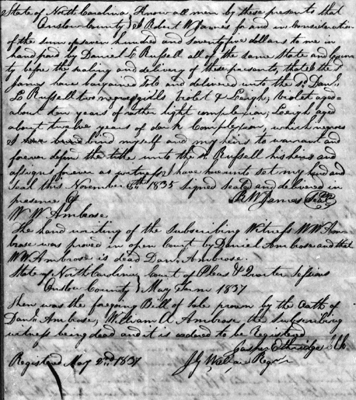 State of North Carolina Know all men by these presents that
Onslow County I Robert W James for and in consideration
of the sum of seven hundred and seventy five dollars to me in
hand paid by Daniel L Russell all of the same State and County
before the sealing and delivery of these presents, that I the sd
James have bargained sold and delivered unto the sd Danl
L Russell two negro girls &
about ten years of rather light complexion, aged
about twelve years of dark complexion, which negroes
I bind myself and my heirs to warrant and
forever defend the title unto the sd Russell his heirs and
assigns forever as I have hereunto set my hand and
seal this November 1835 signed sealed and delivered in
presence of R W James Seal
W. W. Ambrose
The hand writing of the Subscribing Witness WW Am
brose was proved in open court by Daniel Ambrose and that
WW Ambrose is dead Dan Ambrose.
State of North Carolina Court of Pleas & Quarter Sessions
Onslow County May Term 1837
Then was the foregoing Bill of sale proven by the Oath of
Danl Ambrose, William A Ambrose the subscribing
witness being dead and it is ordered to be registered
Ethridge Clk
Registered May 1837